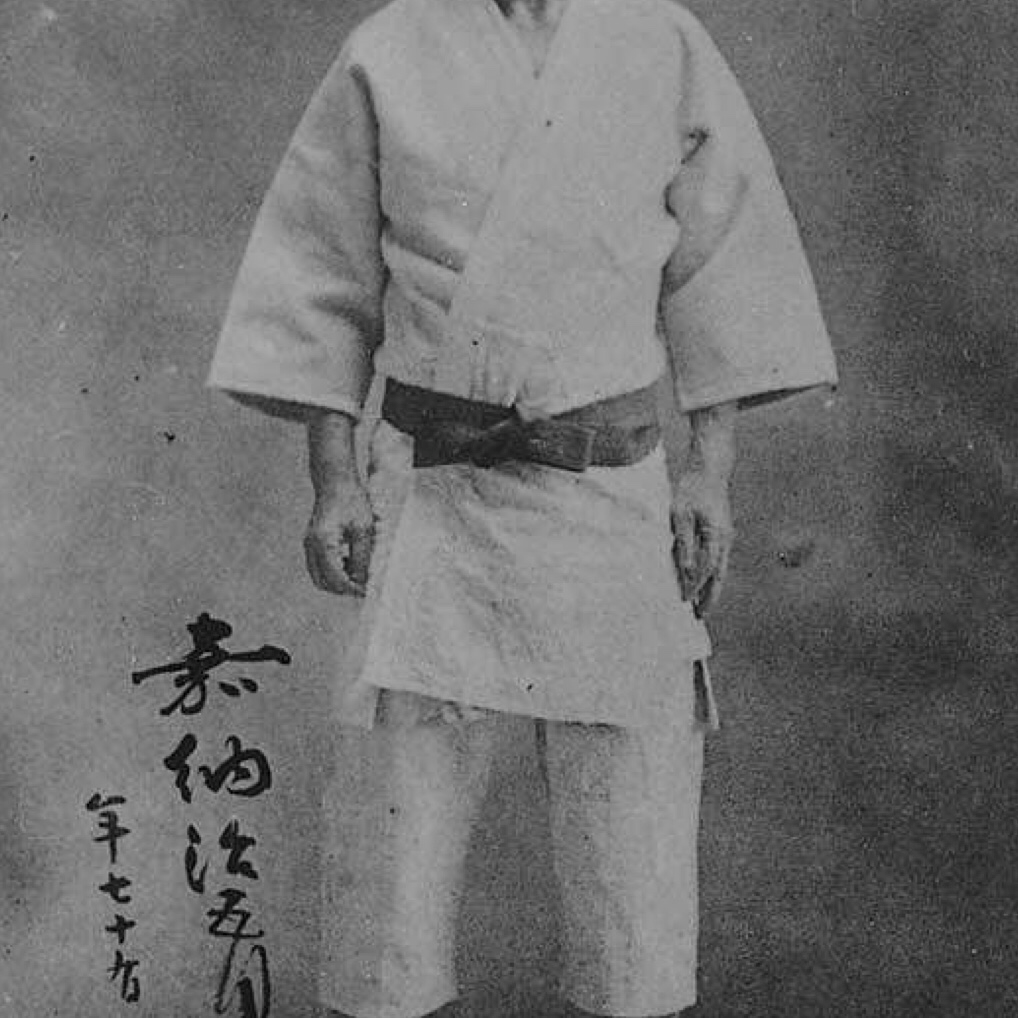 嘉納治五郎
年七十有